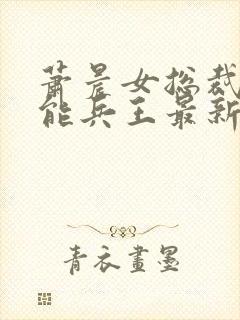 萧晨女总裁
能兵王最新
青衣畫墨